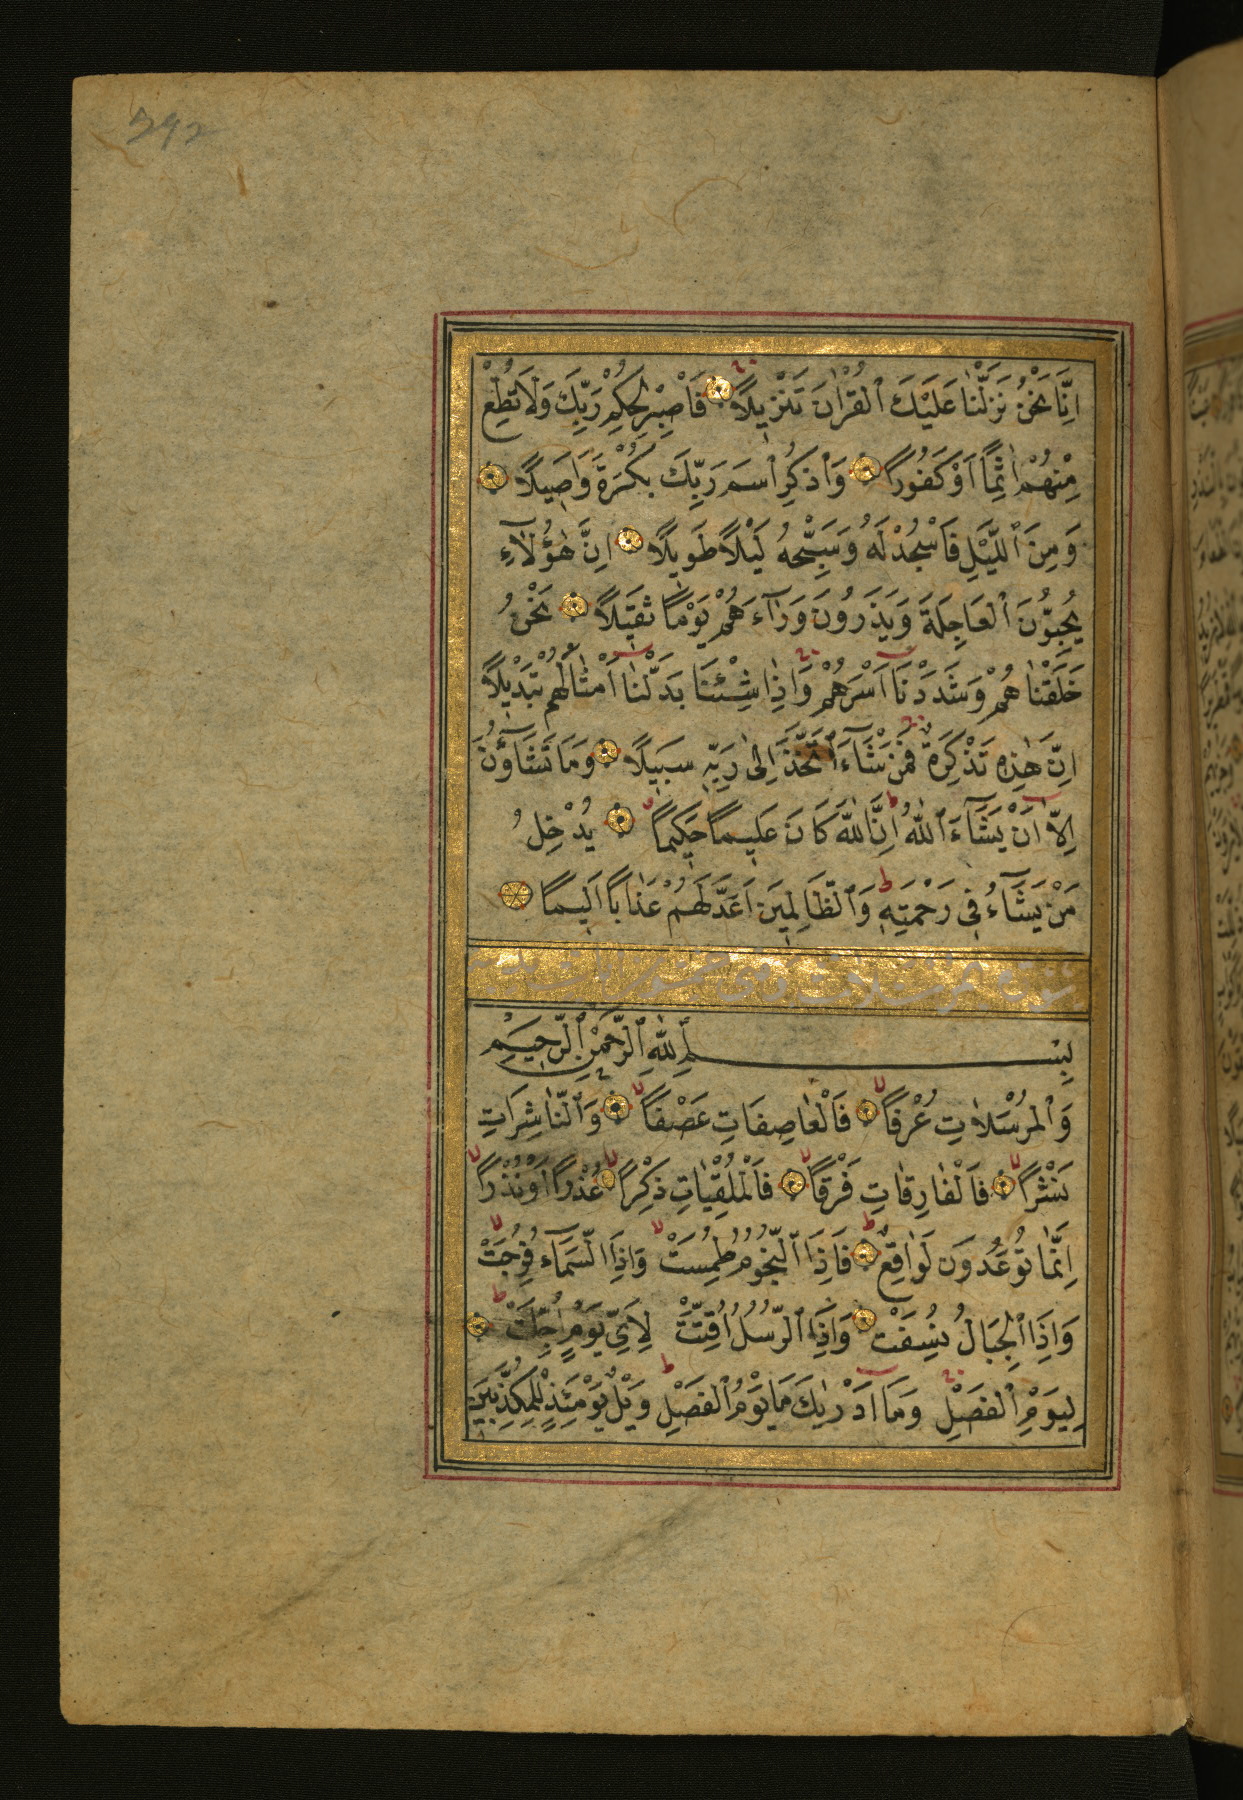 292
اِنَّا نَحْنُ نَزَّلْنَا عَلَيْكَ ٱلْقُرْاٰنَ تَنْزِيلًا فَاصْبِرْ لِحُكْمِ رَبِّكَ وَلَا تُطِعْ
مِنْهُمْ اٰثِمًا اَوْ كَفُورًا وَاذْكُرِ ٱسْمَ رَبِّكَ بُكْرَةً وَاَصِيلًا
وَمِنَ ٱللَّيْلِ فَاسْجُدْ لَهُ وَسَبِّحْهُ لَيْلًا طَوِيلًا اِنَّ هٰؤُلَاۤءِ
يُحِبُّونَ ٱلْعَاجِلَةَ وَيَذَرُونَ وَرَاۤءَهُمْ يَوْمًا ثَقِيلًا نَحْنُ
خَلَقْنَاهُمْ وَشَدَدْنَا اَسْرَهُمْ وَاِذَا شِئْنَا بَدَّلْنَا اَمْثَالَهُمْ تَبْدِيلًا
اِنَّ هٰذِهِ تَذْكِرَةٌ فَمَنْ شَاۤءَ ٱتَّخَذَ اِلٰى رَبِّهِ سَبِيلًا وَمَا تَشَاۤؤُنَ
اِلَّا اَنْ يَشَاۤءَ ٱللّٰهُ اِنَّ اللّٰهَ كَانَ عَلِيمًا حَكِيمًا يُدْخِلُ
مَنْ يَشَاۤءُ فِى رَحْمَتِهِ وَٱلظَّالِمِينَ اَعَدَّ لَهُمْ عَذَابًا اَلِيمًا
بِسْمِ ٱللّٰهِ ٱلرَّحْمٰنِ ٱلرَّحِيمِ
وَٱلْمُرْسَلَاتِ عُرْفًا فَالْعَاصِفَاتِ عَصْفًا وَٱلنَّاشِرَاتِ
نَشْرًا فَالْفَارِقَاتِ فَرْقًا فَالْمُلْقِيَاتِ ذِكْرًا عُذْرًا اَوْ نُذْرًا
اِنَّمَا تُوعَدُونَ لَوَاقِعٌ فَاِذَا ٱلنُّجُومُ طُمِسَتْ وَاِذَا السَّمَاۤءُ فُرِجَتْ
وَاِذَا ٱلْجِبَالُ نُسِفَتْ وَاِذَا ٱلرُّسُلُ اُقِّتَتْ لِاَيِّ يَوْمٍ اُجِّلَتْ
لِيَوْمِ ٱلْفَصْلِ وَمَا اَدْرٰيكَ مَا يَوْمُ ٱلْفَصْلِ وَيْلٌ يَوْمَئِذٍ لِلْمُكَذِّبِينَ